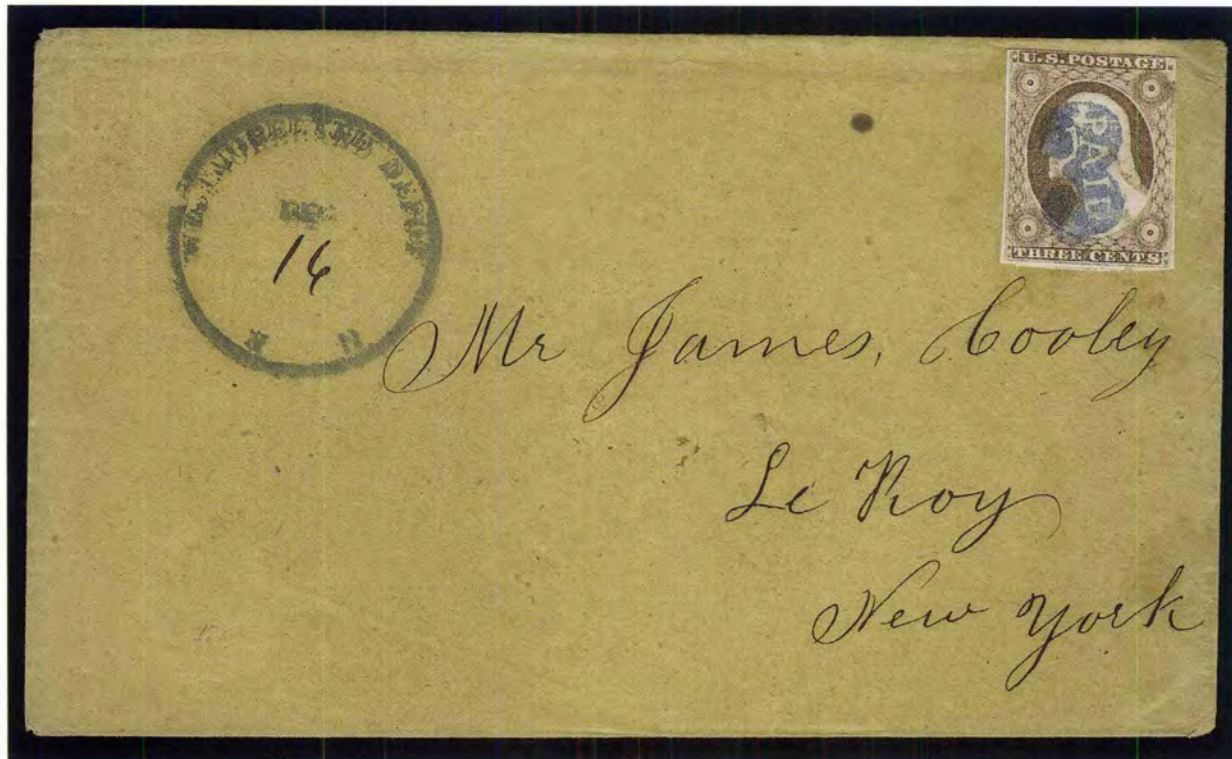 WESTMORELAND DEPOT
DEC
16
N H
U.S. POSTAGE
PAID
THREE CENTS
Mr James, Cooley
Le Roy
New York